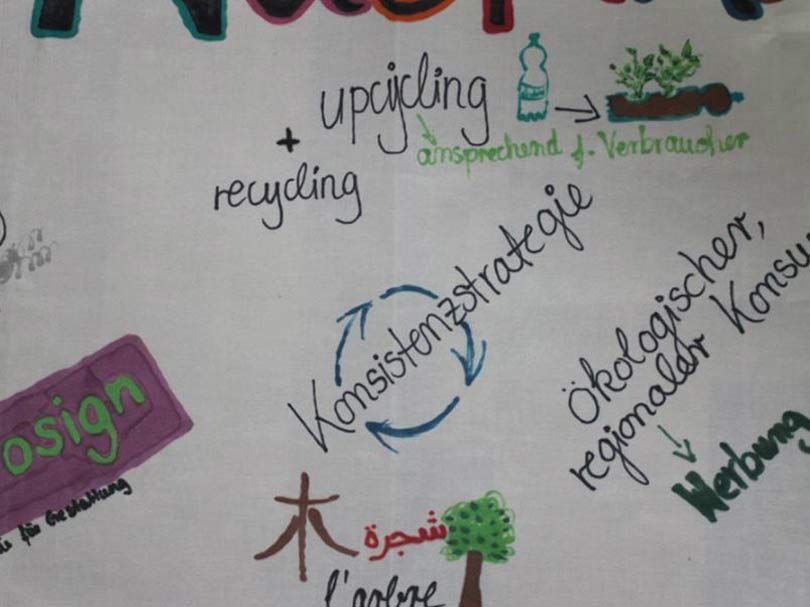 upcycling
+
recycling
ansprechend f. Verbraucher
Konsistenzstrategie
Ökologischer,
regionaler Konsu
Werbung
osign
für Gestaltung
木
شجرة
l'arbre